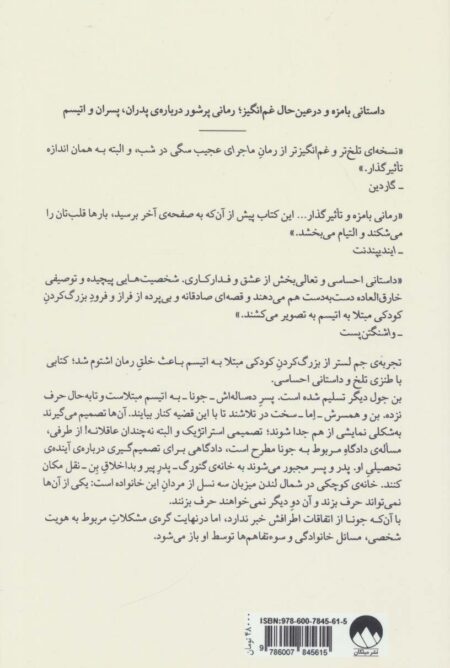 داستانی بامزه و درعین‌حال غم‌انگیز؛ رمانی پرشور درباره‌ی پدران، پسران و اتیسم
«نسخه‌ای تلخ‌تر و غم‌انگیزتر از رمانِ ماجرای عجیب سگی در شب، و البته به همان اندازه
تأثیرگذار.»
ـ گاردین
«رمانی بامزه و تأثیرگذار... این کتاب پیش از آن‌که به صفحه‌ی آخر برسید، بارها قلب‌تان را
می‌شکند و التیام می‌بخشد.»
ـ ایندیپندنت
«داستانی احساسی و تعالی‌بخش از عشق و فداکاری. شخصیت‌هایی پیچیده و توصیفی
خارق‌العاده دست‌به‌دست هم می‌دهند و قصه‌ای صادقانه و بی‌پرده از فراز و فرودِ بزرگ‌کردنِ
کودکی مبتلا به اتیسم به تصویر می‌کشند.»
ـ واشنگتن‌پست
تجربه‌ی جم لستر از بزرگ‌کردنِ کودکی مبتلا به اتیسم باعث خلقِ رمان اشتوم شد؛ کتابی
با طنزی تلخ و داستانی احساسی.
بن جول دیگر تسلیم شده است. پسرِ ده‌ساله‌اش ـ جونا ـ به اتیسم مبتلاست و تا‌به‌حال حرف
نزده. بن و همسرش ـ اِما ـ سخت در تلاشند تا با این قضیه کنار بیایند. آن‌ها تصمیم می‌گیرند
به‌شکلی نمایشی از هم جدا شوند؛ تصمیمی استراتژیک و البته نه‌چندان عاقلانه! از طرفی،
مسأله‌ی دادگاهِ مربوط به جونا مطرح است، دادگاهی برای تصمیم‌گیری درباره‌ی آینده‌ی
تحصیلیِ او. پدر و پسر مجبور می‌شوند به خانه‌ی گئورگ ـ پدرِ پیر و بداخلاقِ بِن ـ نقل مکان
کنند. خانه‌ی کوچکی در شمال لندن میزبان سه نسل از مردانِ این خانواده است: یکی از آن‌ها
نمی‌تواند حرف بزند و آن دوِ دیگر نمی‌خواهند حرف بزنند.
با آن‌که جونا از اتفاقات اطرافش خبر ندارد، اما درنهایت گره‌ی مشکلاتِ مربوط به هویت
شخصی، مسائل خانوادگی و سوءتفاهم‌ها توسط او باز می‌شود.
ISBN: 978-600-7845-61-5
9 786007 845615
۴۸۰۰۰ تومان
نشر میلکان